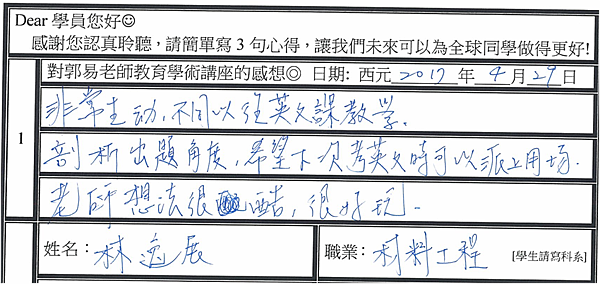 Dear 學員您好☺
感謝您認真聆聽，請簡單寫 3 句心得，讓我們未來可以為全球同學做得更好!
對郭易老師教育學術講座的感想◎ 日期: 西元 2017 年 4 月 29 日
1
非常生动，不同以往英文課教学．
剖析出題角度，希望下次考英文時可以派上用場．
老師想法很酷，很好玩．
姓名：林逸展
職業：材料工程 [學生請寫科系]